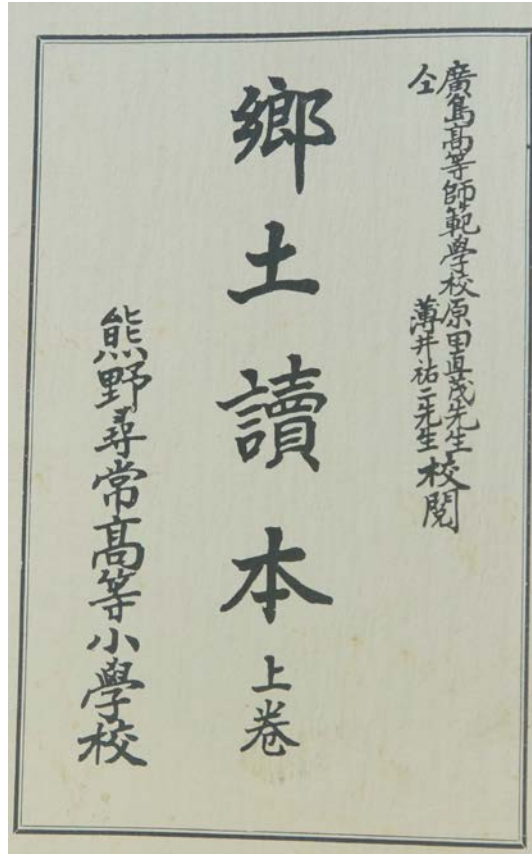 廣島高等師範學校原田眞茂先生
仝薄井祐二先生校閱
鄕土讀本上卷
熊野尋常高等小學校